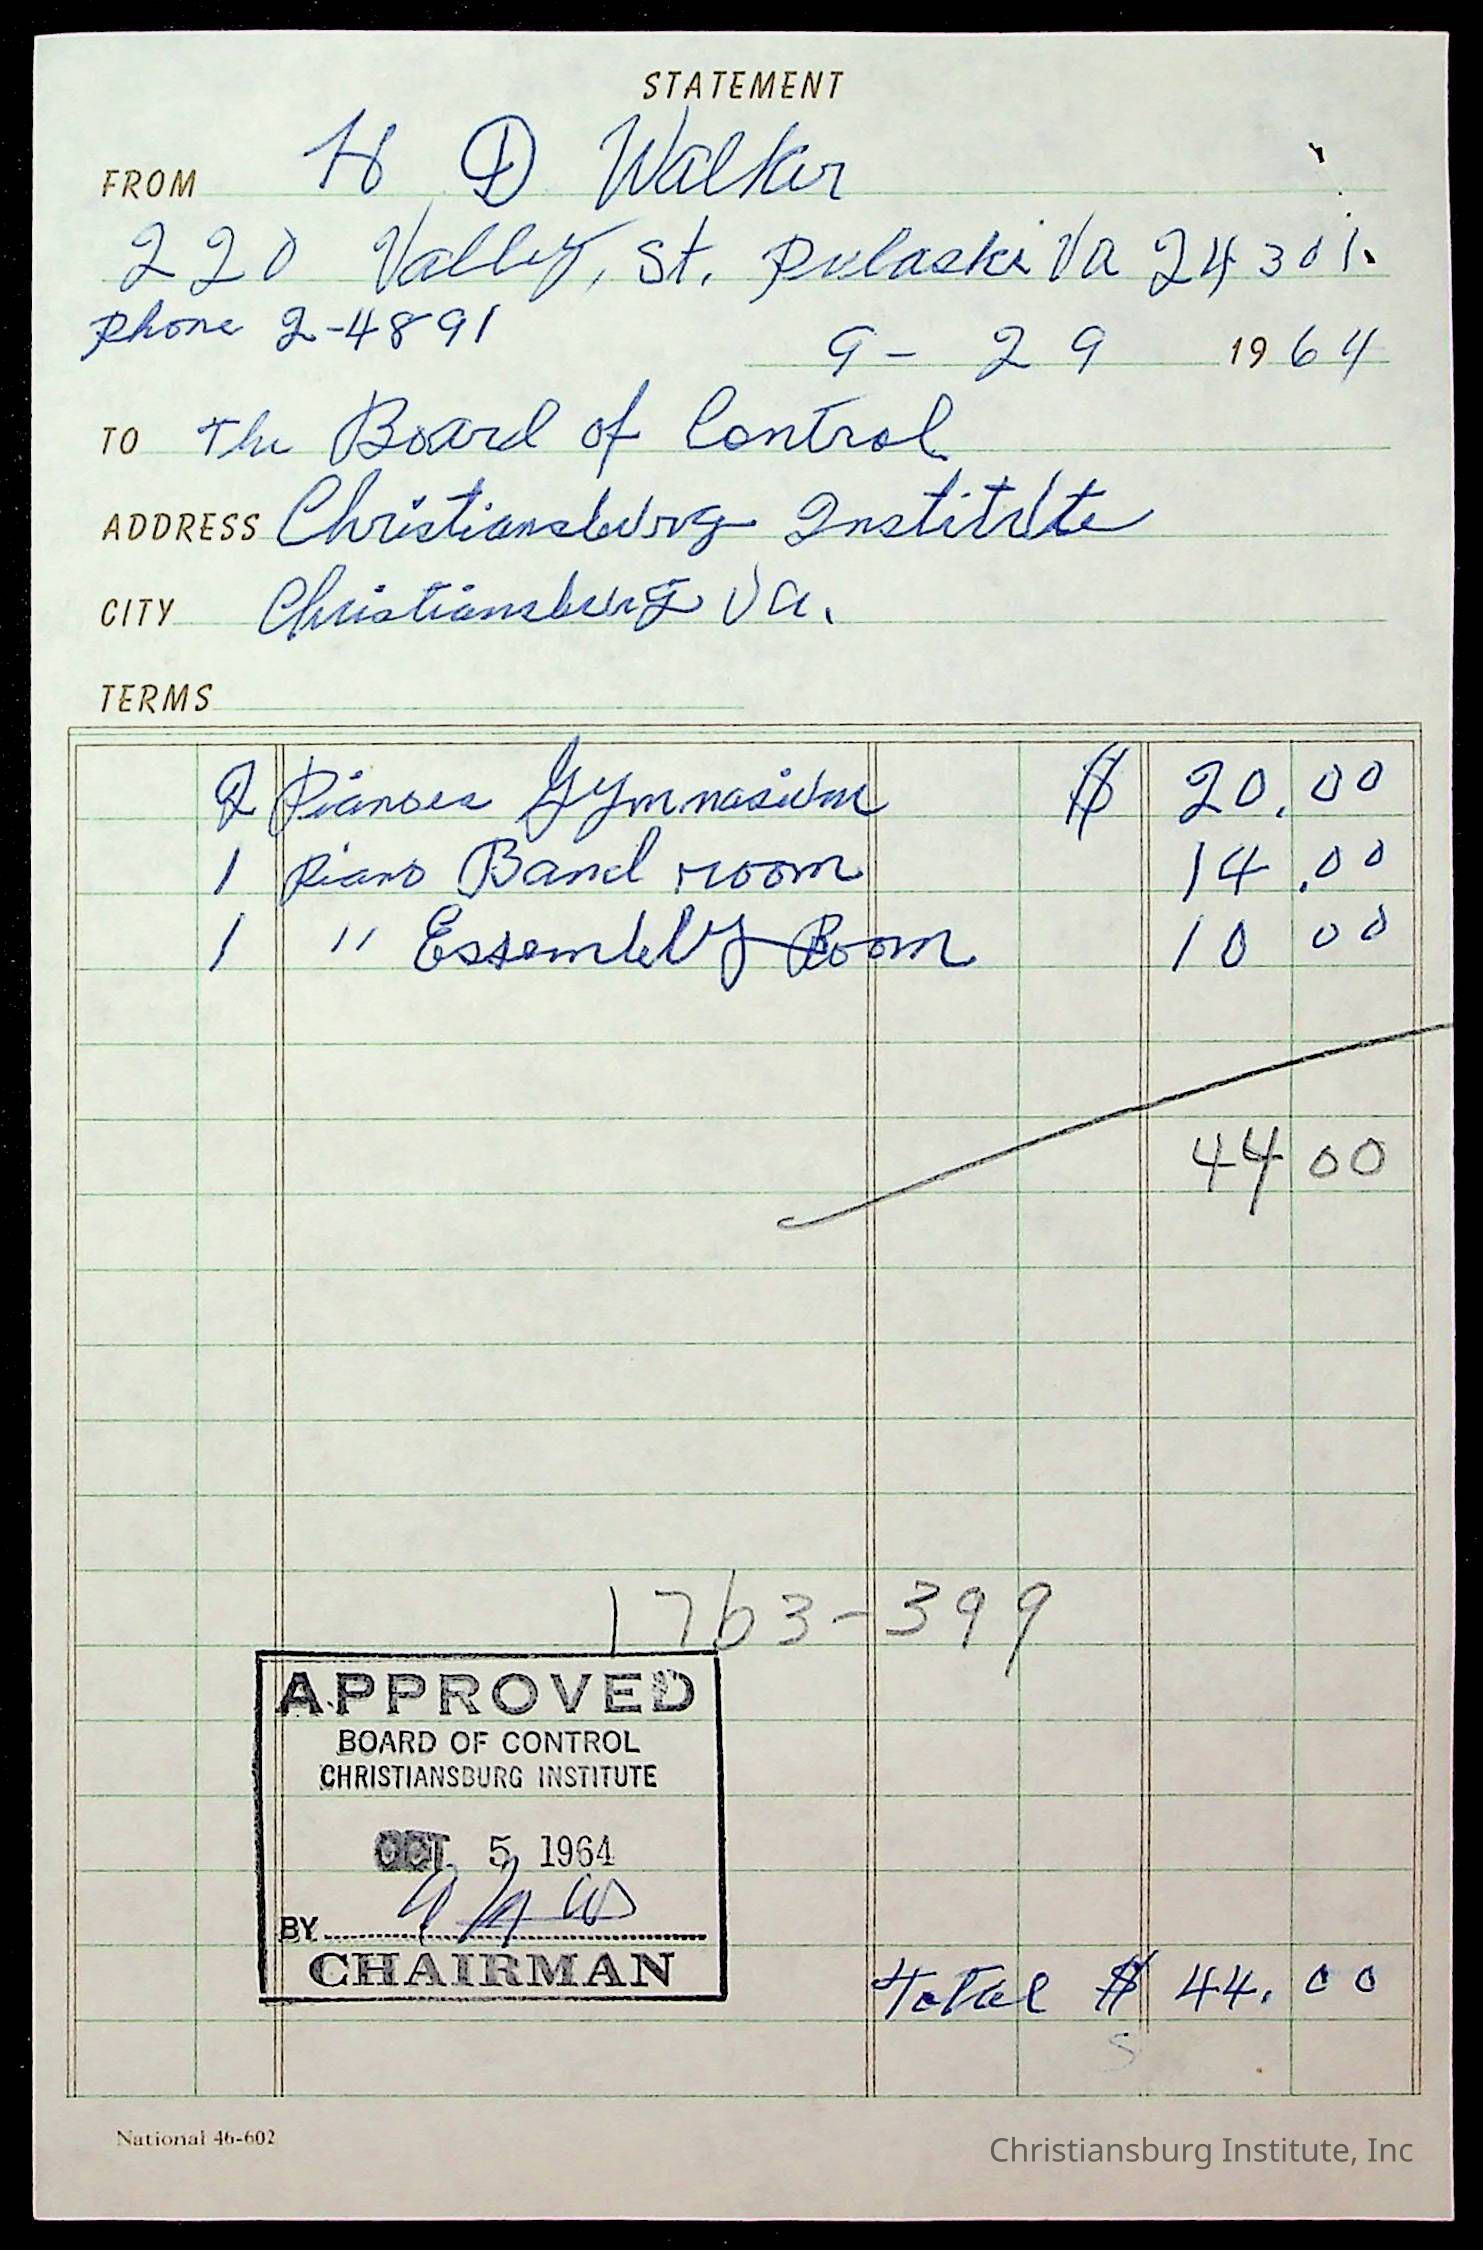 STATEMENT
FROM H D Walker
220 Valley, St. Pulaski Va 24301.
Phone 2-4891
9- 29 1964
TO The Board of Control
ADDRESS Christiansburg Institute
CITY Christiansburg Va.
TERMS
2 Pianoes Gymnasium $ 20.00
1 Piano Band room 14.00
1 " Essembly Room 10 00
44 00
1763-399
APPROVED
BOARD OF CONTROL
CHRISTIANSBURG INSTITUTE
OCT 5 1964
BY
CHAIRMAN
Total $ 44.00
National 46-602
Christiansburg Institute, Inc